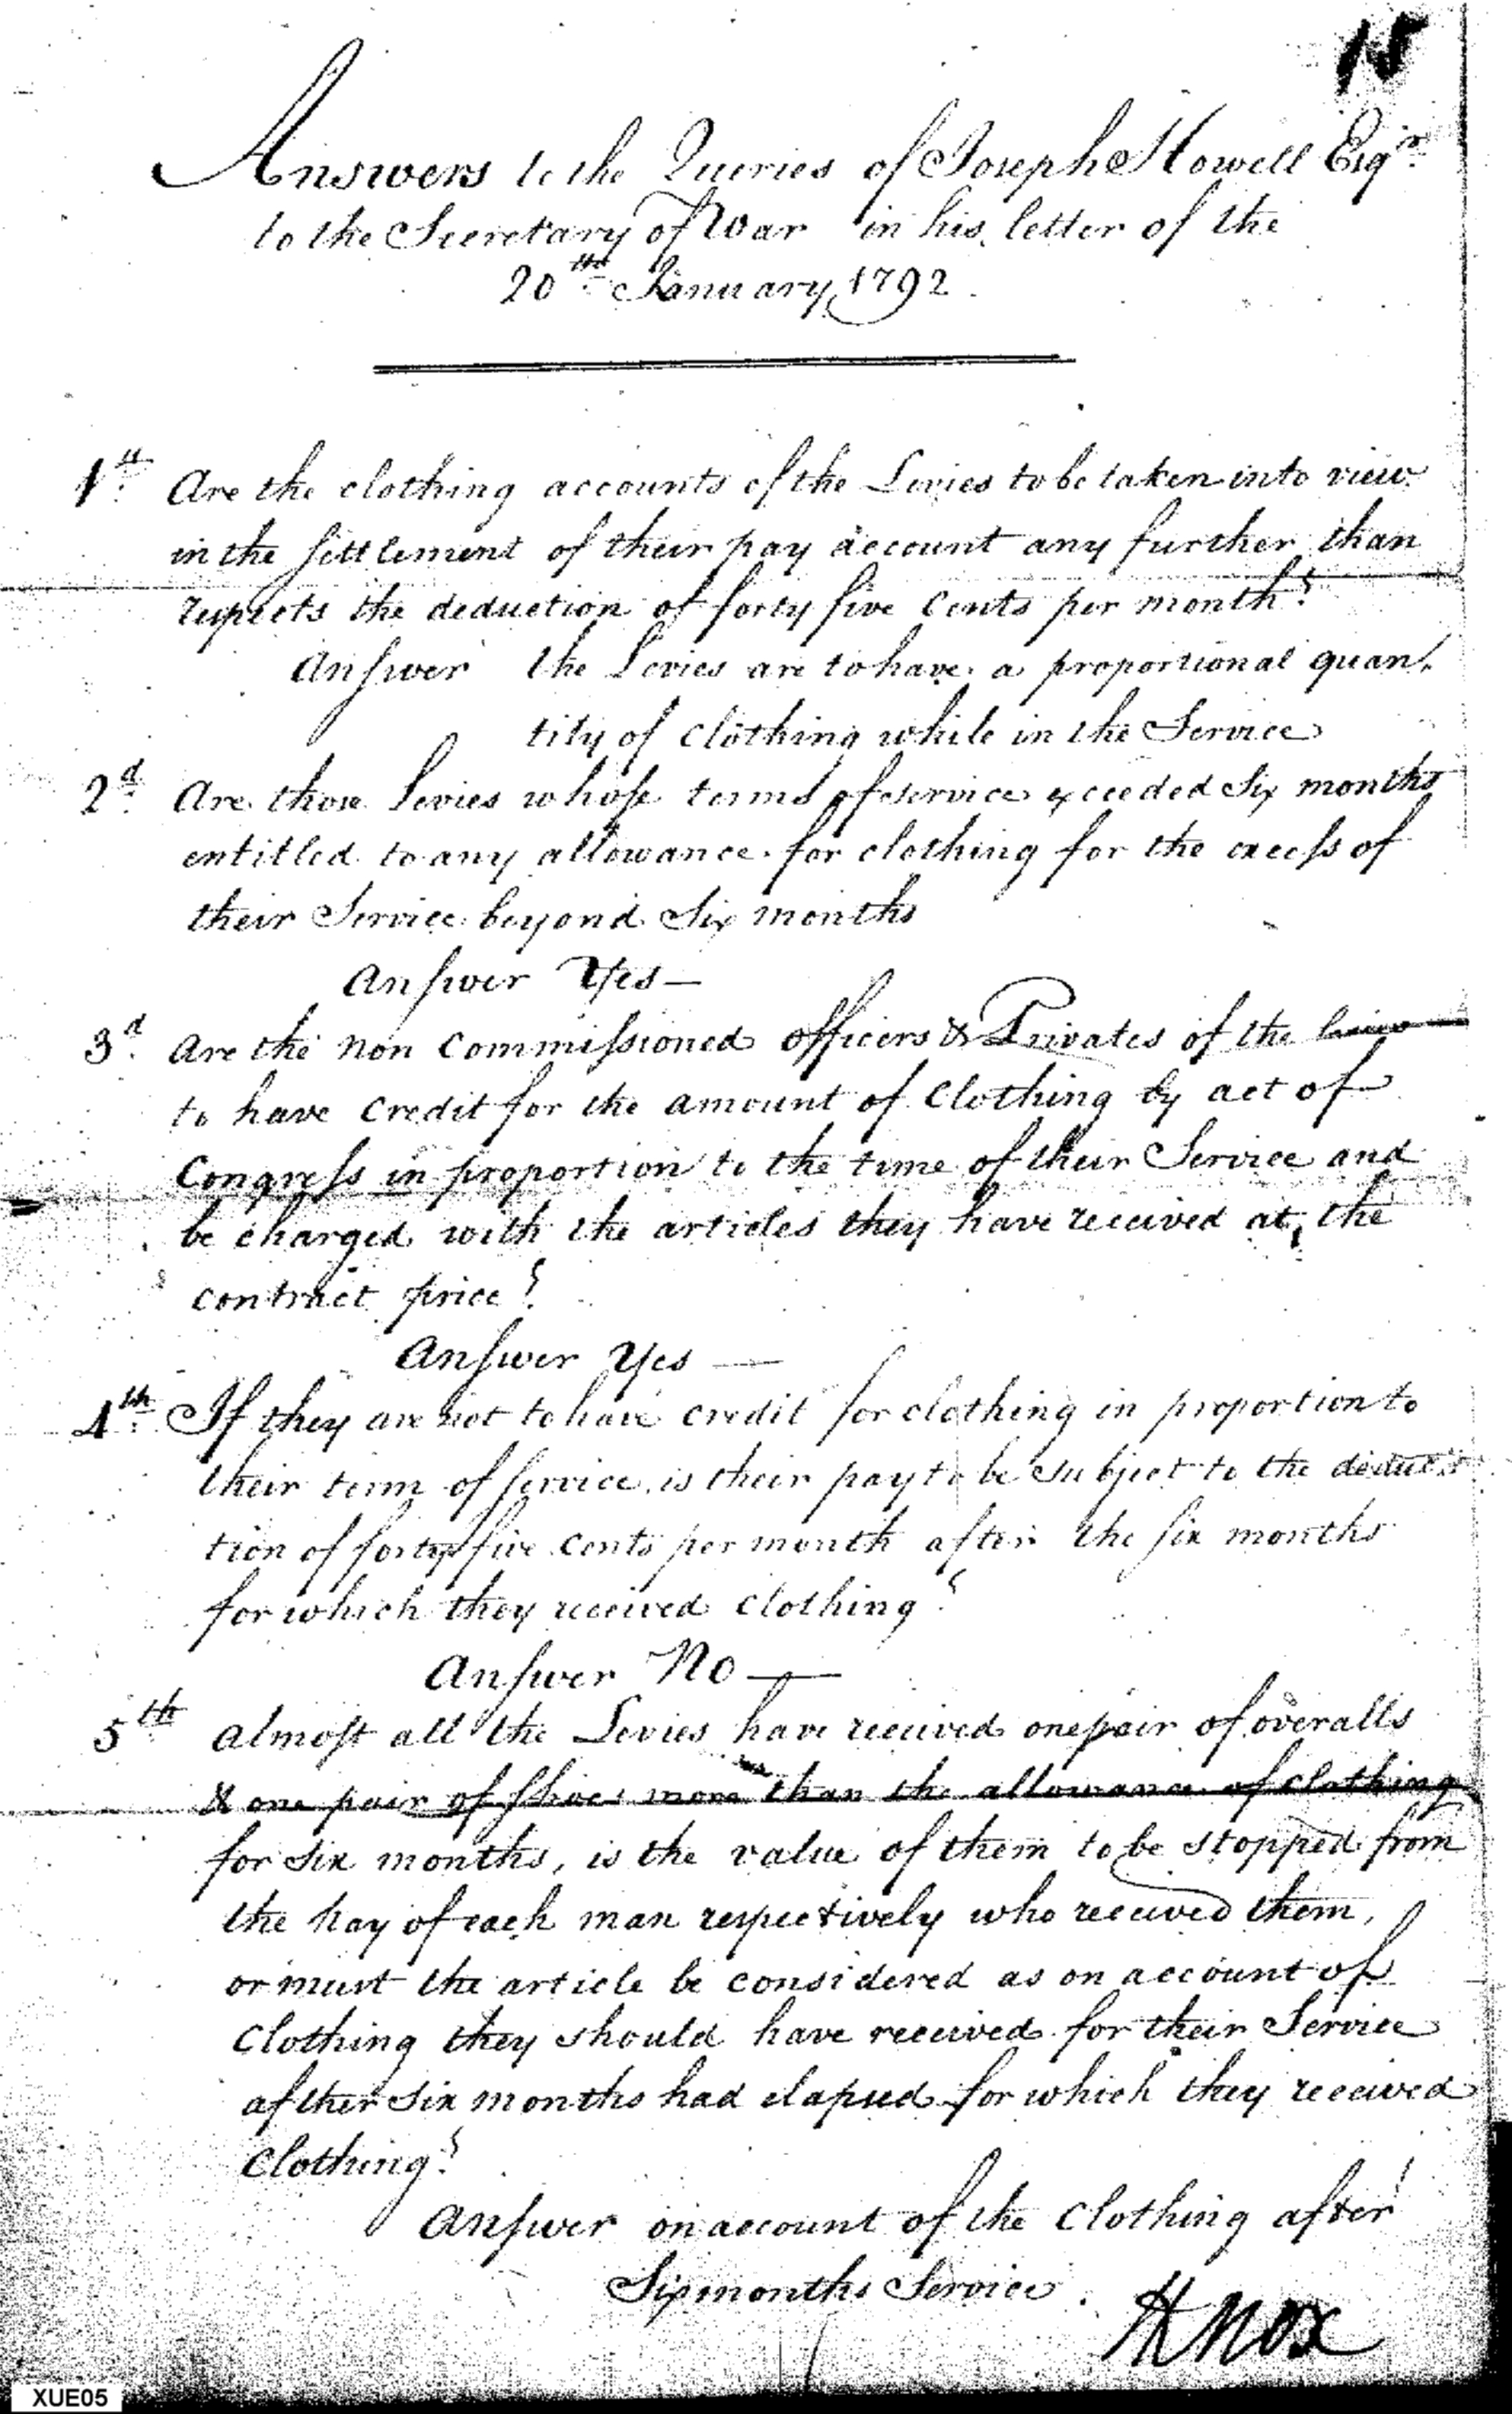 15
Answers to the Queries of Joseph Howell Esqr.
to the Secretary of War in his letter of the
20th January 1792.
1st. Are the clothing accounts of the Levies to be taken into view
in the settlement of their pay account any further than
respects the deduction of forty five Cents per month?
Answer the Levies are to have a proportional quan-
tity of Clothing while in the Service
2d. Are those Levies whose terms of service exceeded Six months
entitled to any allowance for clothing for the excess of
their Service beyond Six months
Answer Yes—
3d. Are the Non Commissioned officers & Privates of the
to have Credit for the amount of Clothing by act of
Congress in proportion to the time of their Service and
be charged with the articles they have received at, the
contract price?
Answer Yes—
4th. If they are not to have credit for clothing in proportion to
their term of service, is their pay to be subject to the deduc-
tion of forty five Cents per month after the six months
for which they received clothing?
Answer No—
5th almost all the Levies have received one pair of overalls
& one pair of shoes more than the allowance of clothing
for six months, is the value of them to be stopped from
the pay of each man respectively who received them,
or must the article be considered as on account of
Clothing they should have received for their Service
after six months had elapsed for which they received
Clothing?
Answer on account of the Clothing after
Six months Service.
HKnox
XUE05